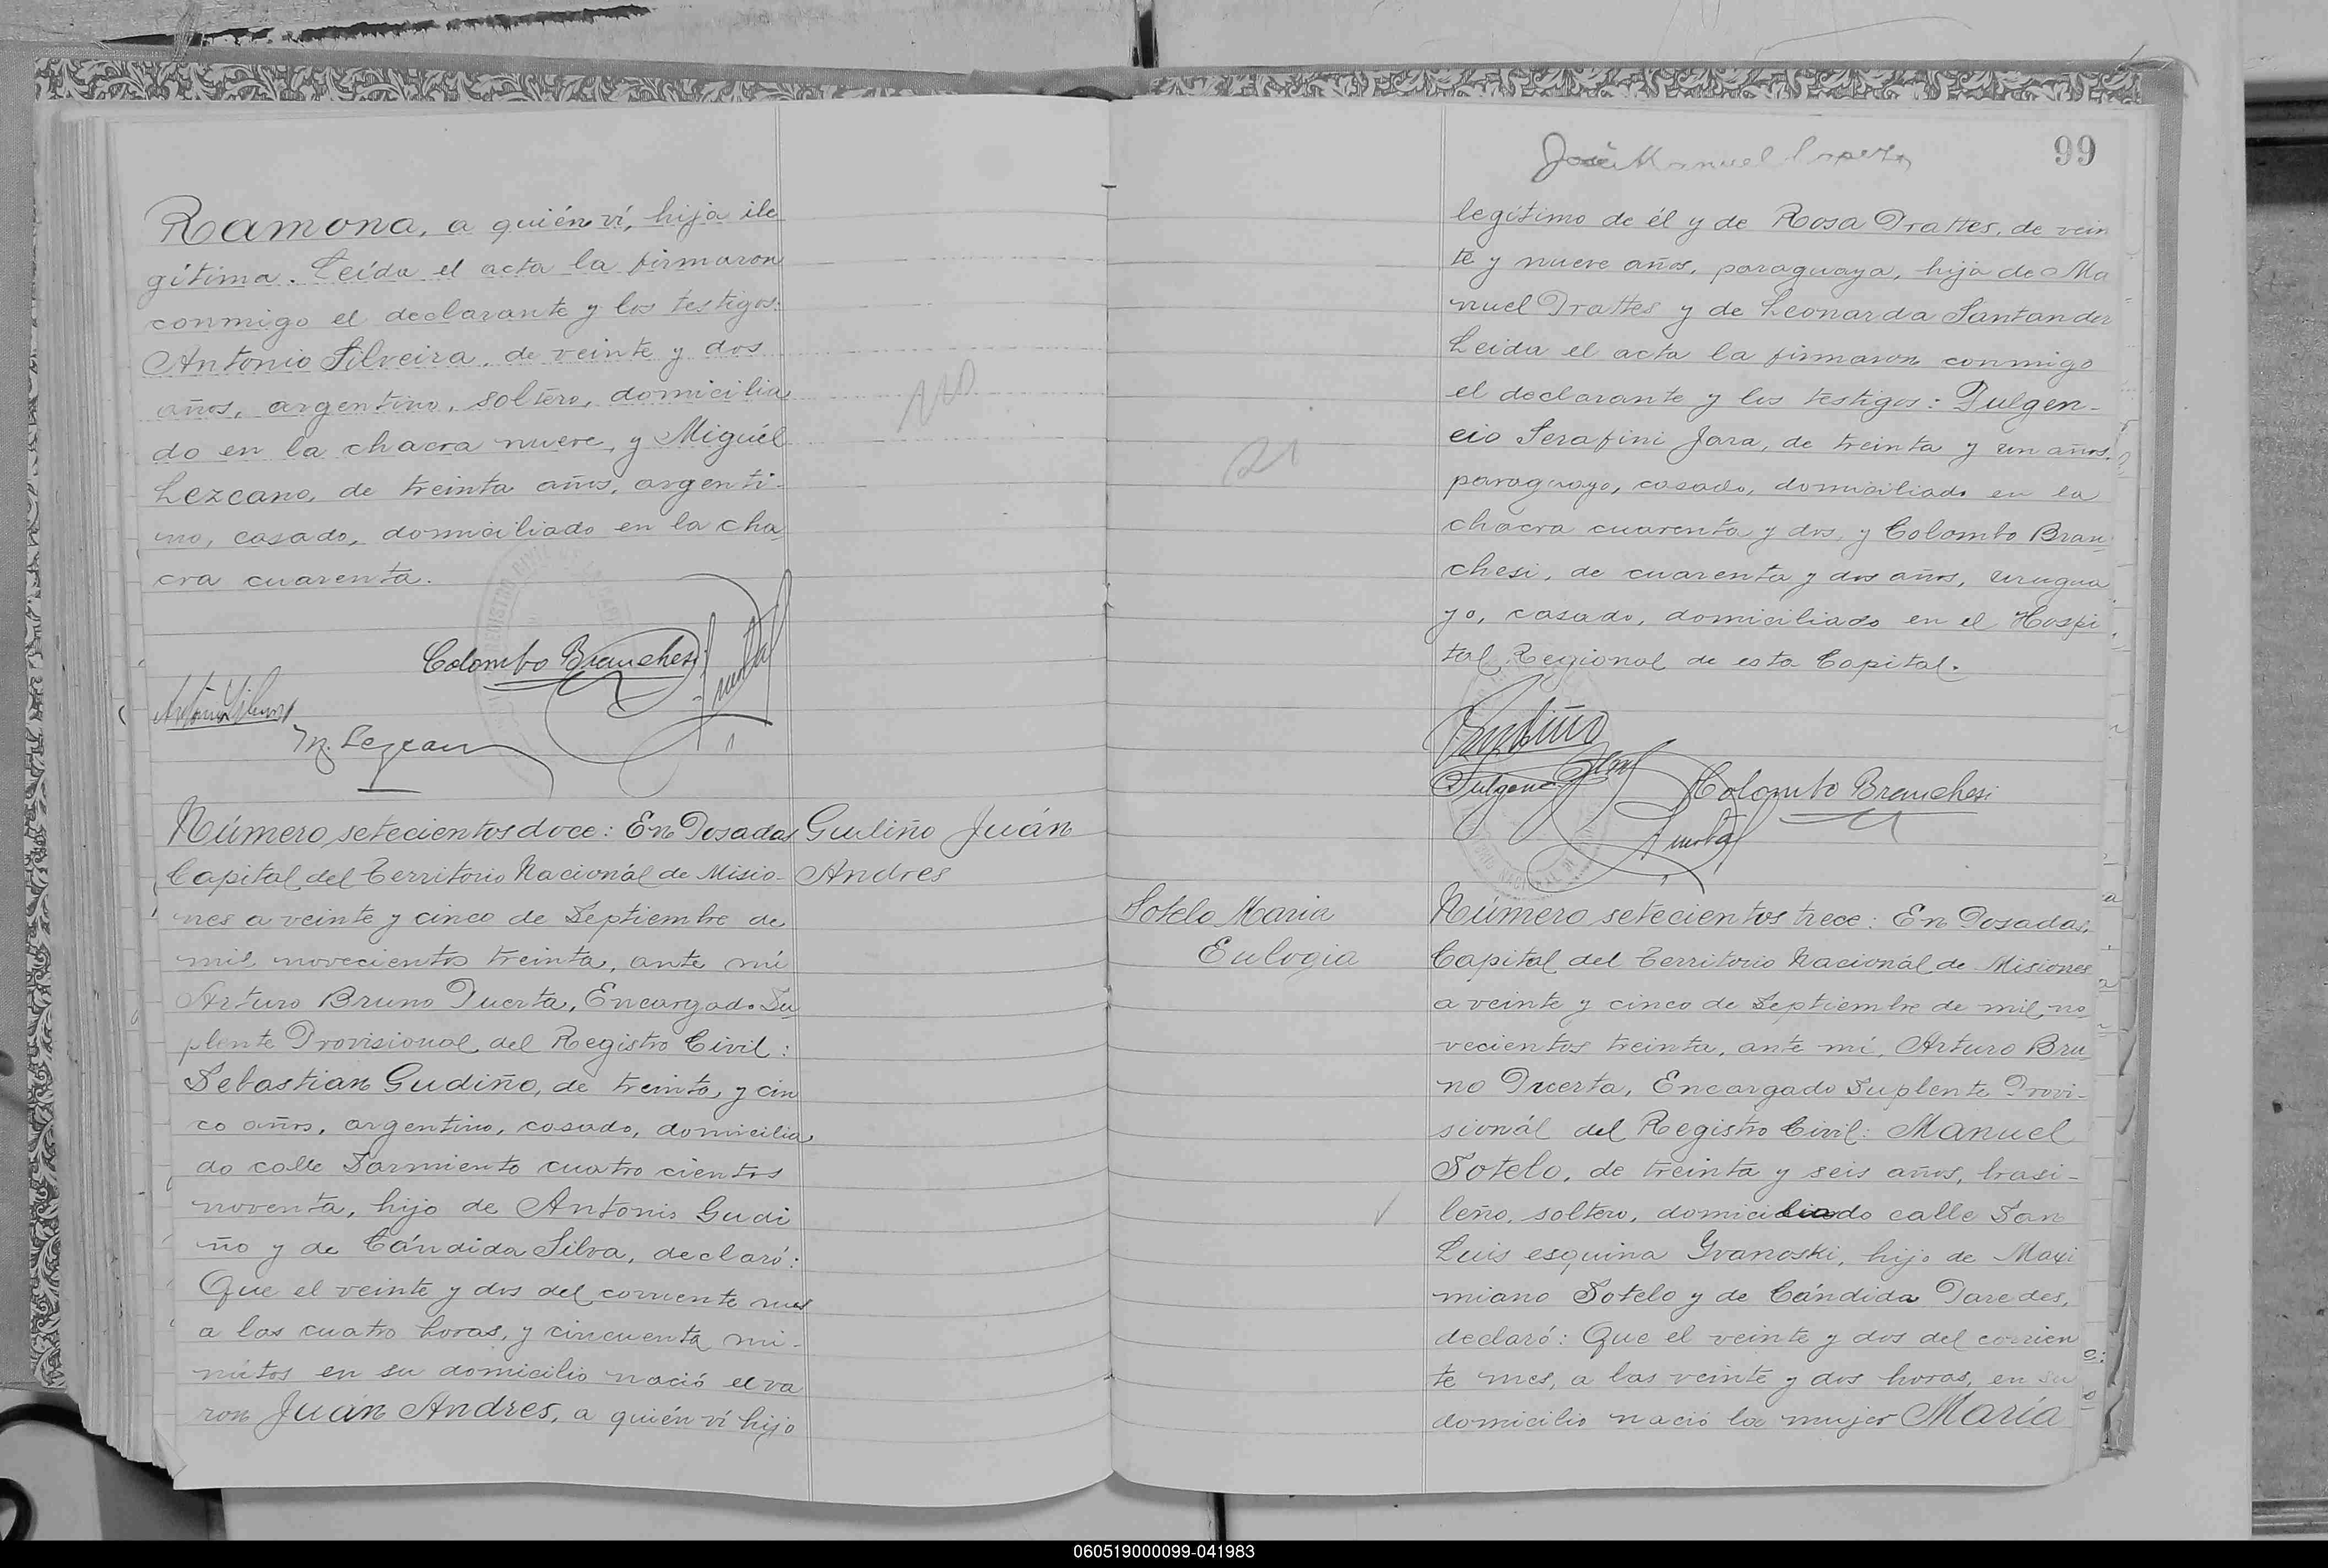 Ramona, a quién ví, hija ile
gítima. Leída el acta la firmaron
conmigo el declarante y los testigos:
Antonio Silveira, de veinte y dos
años, argentino, soltero, domicilia
do en la chacra nueve, y Miguél
Lezcano, de treinta años, argenti-
no, casado, domiciliado en la cha
cra cuarenta.
Colombo Branchesi
M. Lezcano
Número setecientos doce: En Posadas
Capital del Territorio Nacionál de Misio-
nes a veinte y cinco de Septiembre de
mil novecientos treinta, ante mí
Arturo Bruno Puerta, Encargado Su
plente Provisional del Registro Civil:
Sebastian Gudiño, de treinta y cin
co años, argentino, casado, domicilia
do calle Sarmiento cuatro cientos
noventa, hijo de Antonio Gudi
ño y de Cándida Silva, declaró:
Que el veinte y dos del corriente mes
a las cuatro horas, y cincuenta mi-
nútos en su domicilio nació el va
ron Juán Andres, a quién ví hijo
Gudiño Juán
Andres
José Manuel Lopez
99
legítimo de él y de Rosa Prattes, de vein
te y nueve años, paraguaya, hija de Ma
nuel Prattes y de Leonarda Santander
Leida el acta la firmaron conmigo
el declarante y los testigos: Fulgen-
cio Serafini Jara, de treinta y un años,
paraguayo, casado, domiciliado en la
chacra cuarenta y dos, y Colombo Bran
chesi, de cuarenta y dos años, urugua
yo, casado, domiciliado en el Hospi
tal Regional de esta Capital.
Colombo Branchesi
Puerta
Sotelo Maria
Eulogia
Número setecientos trece: En Posadas,
Capital del Territorio Nacionál de Misiones
a veinte y cinco de Septiembre de mil no
vecientos treinta, ante mí, Arturo Bru
no Puerta, Encargado Suplente Provi-
sionál del Registro Civil: Manuel
Sotelo, de treinta y seis años, brasi-
leño, soltero, domiciliado calle San
Luis esquina Yvanoski, hijo de Maxi
miano Sotelo y de Cándida Paredes,
declaró: Que el veinte y dos del corrien
te mes, a las veinte y dos horas, en su
domicilio nació la mujer María
060519000099-041983